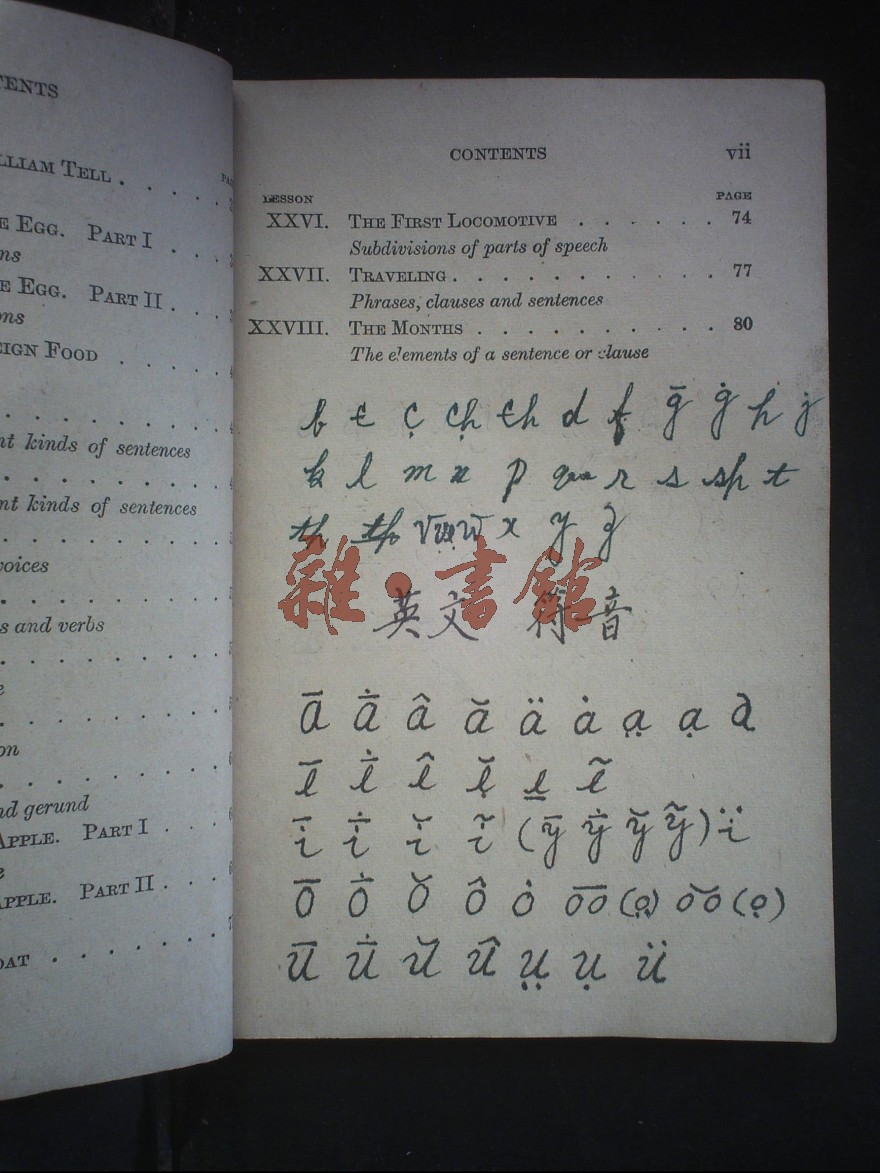 TENTS
LLIAM TELL
E EGG. PART I
ns
E EGG. PART II
ons
EIGN FOOD
nt kinds of sentences
nt kinds of sentences
voices
s and verbs
e
on
nd gerund
APPLE. PART I
e
APPLE. PART II
OAT
CONTENTS vii
LESSON PAGE
XXVI. THE FIRST LOCOMOTIVE . . . . . . 74
Subdivisions of parts of speech
XXVII. TRAVELING . . . . . . . . . . 77
Phrases, clauses and sentences
XXVIII. THE MONTHS . . . . . . . . . . 80
The elements of a sentence or clause
b c̵ ç c̣h c̵h d f ḡ ġ h j
k l m n p qu r s sh t
th th v w w̄ x y z
雜·書館
英文 符音
ā ā̇ â ă ä ȧ a̤ ạ a
ē ē̇ ê ĕ e̱ ẽ
ī ī̇ ĭ ĩ (ȳ ȳ̇ y̆ ỹ) ï
ō ō̇ ŏ ô ȯ o͞o (o̤) o͝o (ọ)
ū ū̇ ŭ û ṳ ụ ü